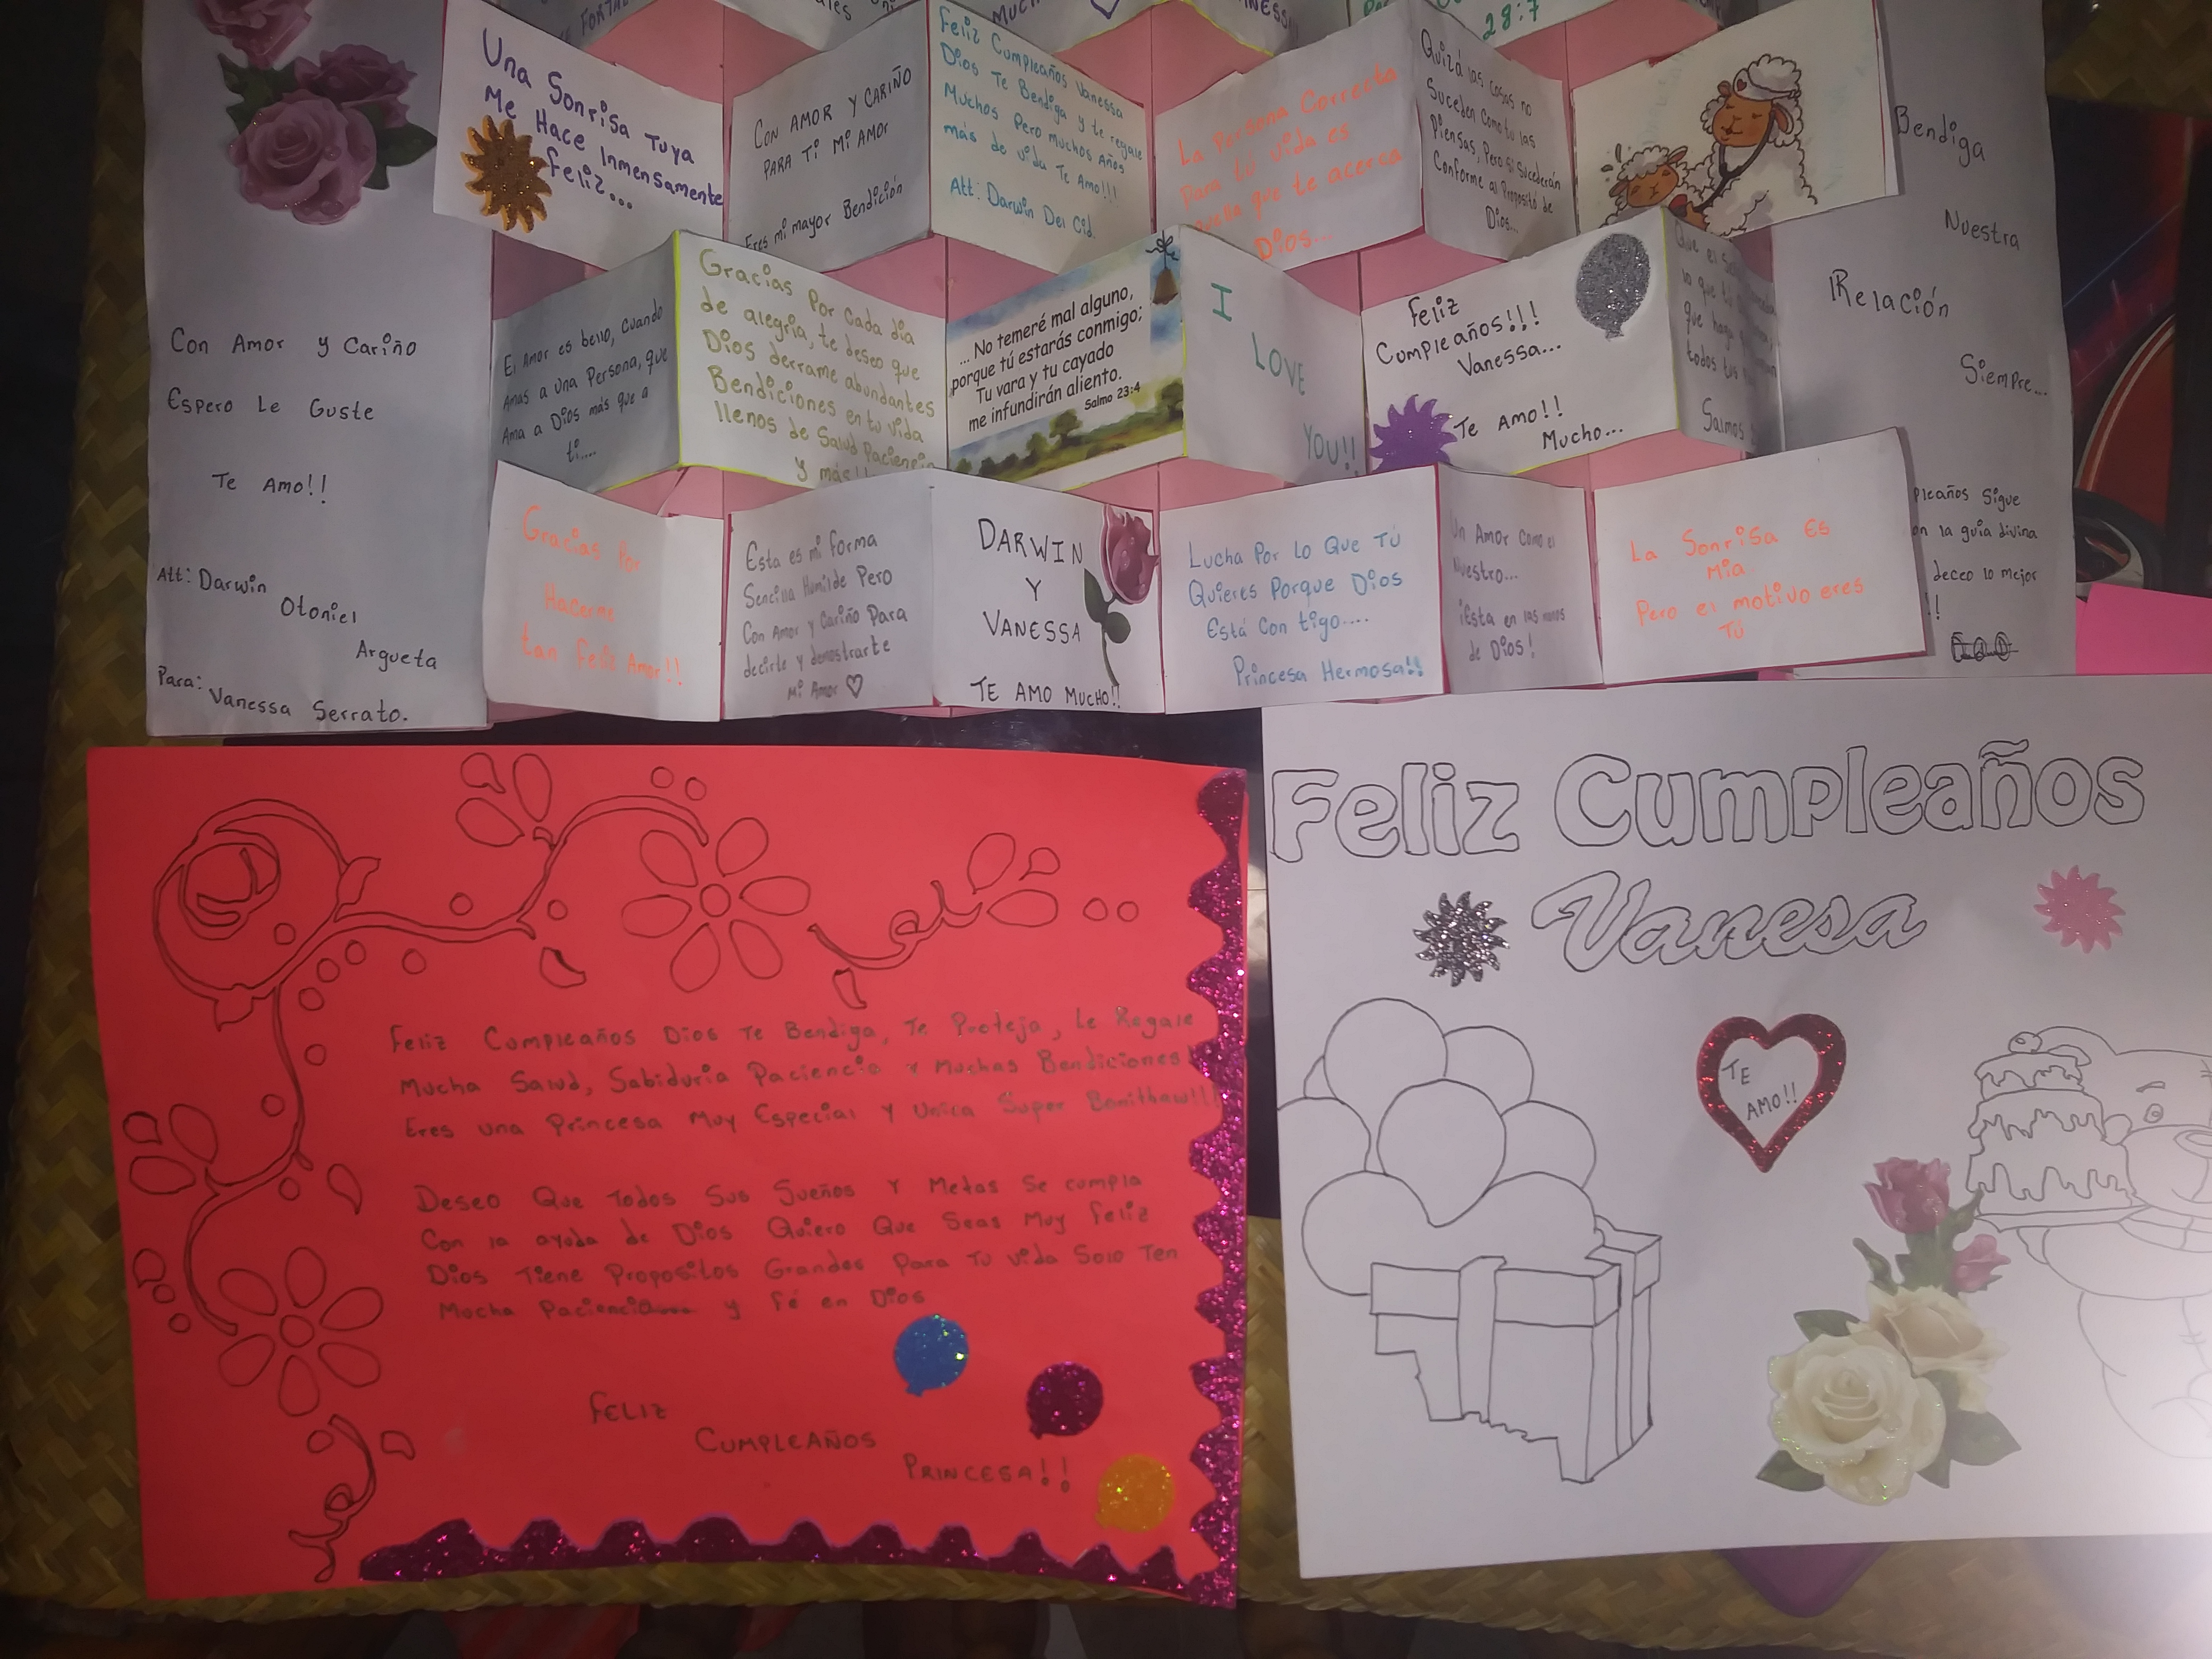 28:7
Una Sonrisa Tuya
Me Hace Inmensamente
Feliz...
CON AMOR Y CARIÑO
PARA Ti Mi AMOR
Eres mi mayor Bendición
Feliz Cumpleaños Vanessa
Dios Te Bendiga y te regale
Muchos Pero muchos Años
más de vida Te Amo!!!
Att: Darwin Del Cid.
La Persona Correcta
Para tú vida es
que te acerca
Dios...
Quizá las cosas no
Suceden Como tu las
Piensas, Pero si Sucederán
Conforme al Proposito de
Dios...
Bendiga
Nuestra
Relación
Siempre...
pleaños Sigue
on la guia divina
deceo lo mejor
!!
Con Amor y Cariño
Espero Le Guste
Te Amo!!
Att: Darwin
Otoniel
Argueta
Para: Vanessa Serrato.
El Amor es bello, cuando
Amas a una Persona, que
Ama a Dios más que a
ti....
Gracias Por Cada dia
de alegria, te deseo que
Dios derrame abundantes
Bendiciones en tu vida
llenos de Salud Paciencia
y más!!
... No temeré mal alguno,
porque tú estarás conmigo;
Tu vara y tu cayado
me infundirán aliento.
Salmo 23:4
I
LOVE
YOU!!
Feliz
Cumpleaños!!!
Vanessa...
Te Amo!!
Mucho...
Que el
lo que tú
que haga
todos tus
Salmos
Gracias Por
Hacerme
tan Feliz Amor!!
Esta es mi forma
Sencilla Humilde Pero
Con Amor y Cariño Para
decirte y demostrarte
Mi Amor ♡
DARWIN
Y
VANESSA
TE AMO MUCHO!!
Lucha Por lo Que Tú
Quieres Porque Dios
Está Con tigo....
Princesa Hermosa!!
Un Amor Como el
Nuestro...
¡Esta en las manos
de Dios!
La Sonrisa Es
Mia
Pero el motivo eres
Tú
Feliz Cumpleaños Dios Te Bendiga, Te Proteja, Le Regale
Mucha Salud, Sabiduria Paciencia y Muchas Bendiciones!
Eres una Princesa Muy Especial Y Unica Super
Deseo Que Todos Sus Sueños Y Metas Se cumpla
Con la ayuda de Dios Quiero Que Seas Muy Feliz
Dios Tiene Propositos Grandes Para Tu vida Solo Ten
Mucha Paciencia y Fé en Dios
FELIZ
CUMPLEAÑOS
PRINCESA!!
Feliz Cumpleaños
Vanesa
TE
AMO!!